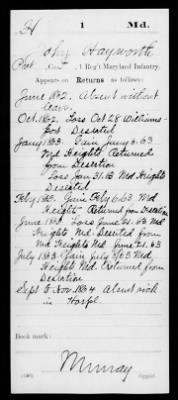 H 1 Md.
John Hayworth
Pvt., Co. , 1 Reg't Maryland Infantry.
Appears on Returns as follows:
June 1862. Absent without
leave.
Oct. 1862. Loss Oct 28 Williams-
port Deserted
Jany 1863. Gain Jany 5.63
Md Heights Returned
from Desertion
Loss Jan 31.63 Md Heights
Deserted
Feby 1863. Gain Feby 6.63 Md
Heights - Returned from Desertion
June 1863. Loss June 21.63 Md
Heights Md. Deserted from
Md Heights Md June 21.63
July 1863. Gain July 5/63 Md
Heights Md. Returned from
Desertion
Sept to Nov. 1864. Absent sick
in Hospl.
Book mark:
Murray
Copyist.